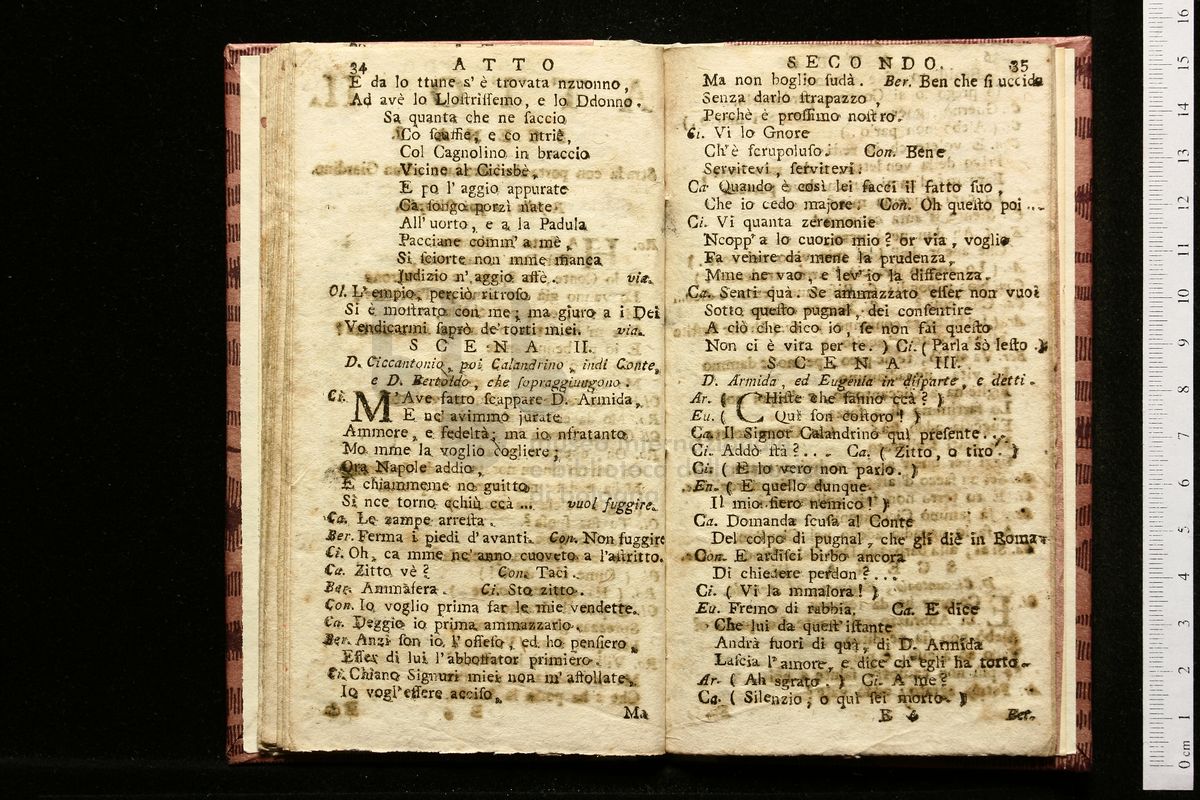 34 ATTO
E da lo ttune s' è trovata nzuonno,
Ad avè lo Lloſtriſſemo, e lo Ddonno.
Sa quanta che ne ſaccio
Co ſcuffie, e co ntriè,
Col Cagnolino in braccio
Vicine al Cicisbè,
E po l' aggio appurate
Ca ſongo porzì nate
All' uorto, e a la Padula
Pacciane comm' a mè,
Si ſciorte non mme manca
Judizio n' aggio aſſè. via.
Ol. L' empio, perciò ritroſo
Si è moſtrato con me; ma giuro a i Dei
Vendicarmi ſaprò de' torti miei. via.
SCENA II.
D. Ciccantonio, poi Calandrino, indi Conte,
e D. Bertoldo, che ſopraggiungono.
Ci. M' Ave fatto ſcappare D. Armida,
E nc' avimmo jurate
Ammore, e fedeltà; ma io nfratanto
Mo mme la voglio cogliere;
Ora Napole addio,
E chiammeme no guitto
Si nce torno cchiù ccà ... vuol fuggire.
Ca. Le zampe arreſta.
Ber. Ferma i piedi d' avanti. Con. Non fuggire
Ci. Oh, ca mme nc' anno cuoveto a l' aſtritto.
Ca. Zitto vè? Con. Taci.
Ber. Ammàfera. Ci. Sto zitto.
Con. Io voglio prima far le mie vendette.
Ca. Deggio io prima ammazzarlo.
Ber. Anzi ſon io l' offeſo, ed ho penſiero
Eſſer di lui l' abboſſator primiero.
Ci. Chiano Signuri miei non m' aſtollate,
Io vogl' eſſere acciſo,
Ma
SECONDO. 35
Ma non boglio ſudà. Ber. Ben che ſi uccida
Senza darlo ſtrapazzo,
Perchè è proſſimo noſtro.
Ci. Vi lo Gnore
Ch' è ſcrupoluſo. Con. Bene
Servitevi, ſervitevi.
Ca Quando è così lei facci il fatto ſuo,
Che io cedo majore. Con. Oh queſto poi ...
Ci. Vi quanta zeremonie
Ncopp' a lo cuorio mio? or via, voglio
Fa venire da mene la prudenza,
Mme ne vao, e lev' io la differenza.
Ca. Senti quà. Se ammazzato eſſer non vuoi
Sotto queſto pugnal, dei conſentire
A ciò che dico io, ſe non fai queſto
Non ci è vita per te. ) Ci. ( Parla sò leſto. )
SCENA III.
D. Armida, ed Eugenia in diſparte, e detti.
Ar. ( CHiſte che fanno ccà? )
Eu. ( Quì ſon coſtoro! )
Ca. Il Signor Calandrino quì preſente...
Ci. Addò ſtà?... Ca. ( Zitto, o tiro. )
Ci. ( E lo vero non parlo. )
Eu. ( E quello dunque
Il mio fiero nemico! )
Ca. Domanda ſcuſa al Conte
Del colpo di pugnal, che gli diè in Roma
Con. E ardiſci birbo ancora
Di chiedere perdon?...
Ci. ( Vi la mmalora! )
Eu. Fremo di rabbia. Ca. E dice
Che lui da queſt' iſtante
Andrà fuori di quà, di D. Armida
Laſcia l' amore, e dice ch' egli ha torto.
Ar. ( Ah sgrato. ) Ci. A me?
Ca. ( Silenzio, o quì ſei morto. )
B 6 Ber.